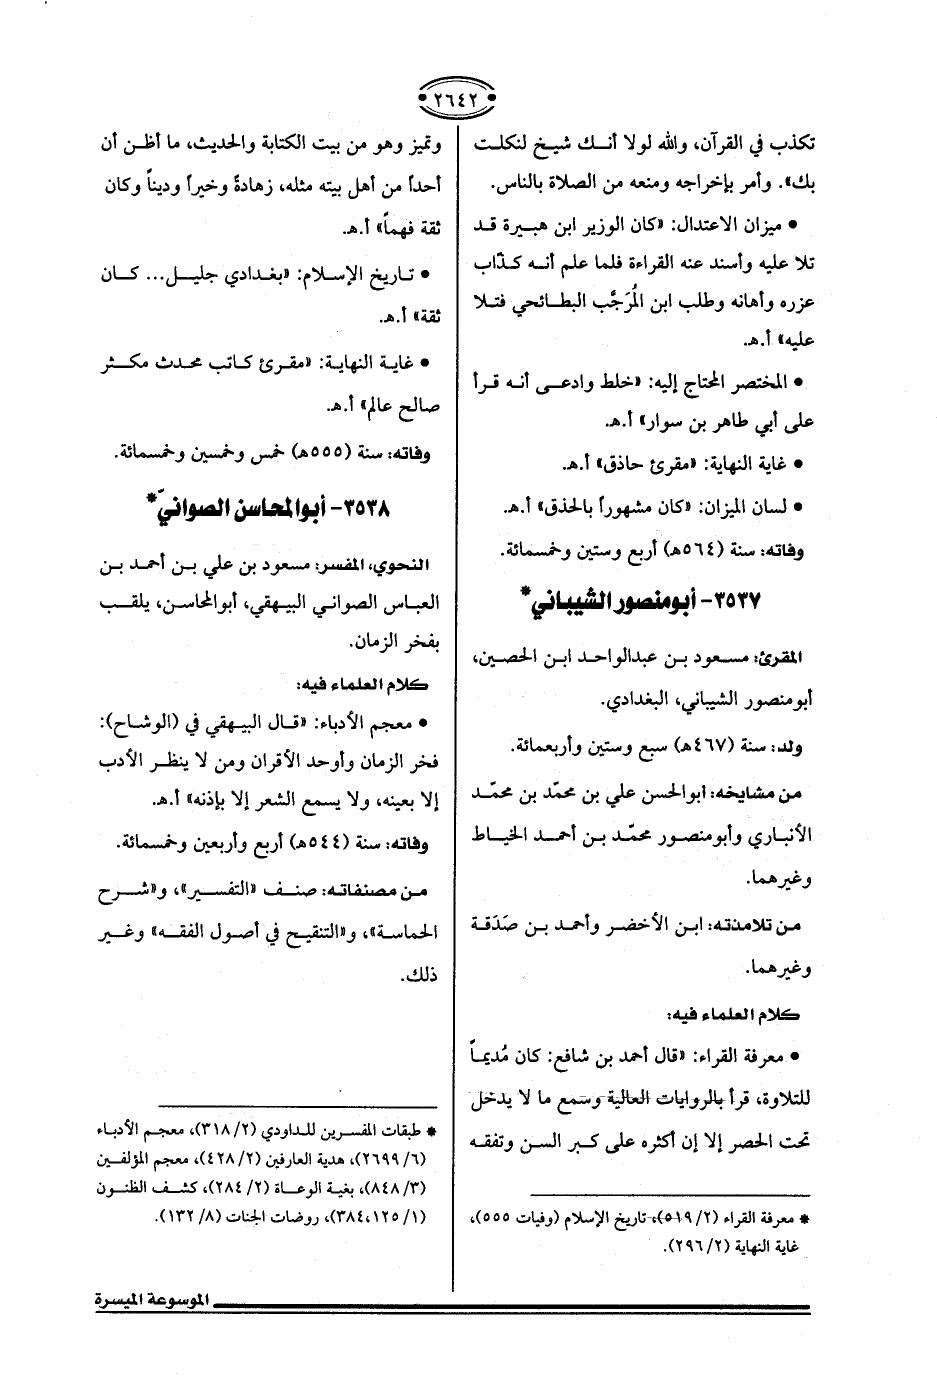 ٢٦٤٢
تكذب في القرآن، والله لولا أنك شيخ لنكلت
بك». وأمر بإخراجه ومنعه من الصلاة بالناس.
• ميزان الاعتدال: «كان الوزير ابن هبيرة قد
تلا عليه وأسند عنه القراءة فلما علم أنه كذّاب
عزره وأهانه وطلب ابن المُرَجَّب البطائحي فتلا
عليه» أ.هـ.
• المختصر المحتاج إليه: «خلط وادعى أنه قرأ
على أبي طاهر بن سوار» أ.هـ.
• غاية النهاية: «مقرئ حاذق» أ.هـ.
• لسان الميزان: «كان مشهوراً بالحذق» أ.هـ.
وفاته: سنة (٥٦٤هـ) أربع وستين وخمسمائة.
٣٥٣٧- أبو منصور الشيباني*
المقرئ: مسعود بن عبدالواحد ابن الحصين،
أبو منصور الشيباني، البغدادي.
ولد: سنة (٤٦٧هـ) سبع وستين وأربعمائة.
من مشايخه: أبو الحسن علي بن محمّد بن محمّد
الأنباري وأبو منصور محمّد بن أحمد الخياط
وغيرهما.
من تلامذته: ابن الأخضر وأحمد بن صَدَقة
وغيرهما.
كلام العلماء فيه:
• معرفة القراء: «قال أحمد بن شافع: كان مُديماً
للتلاوة، قرأ بالروايات العالية وسمع ما لا يدخل
تحت الحصر إلا إن أكثره على كبر السن وتفقه
* معرفة القراء (٢/ ٥١٩)، تاريخ الإسلام (وفيات ٥٥٥)،
غاية النهاية (٢/ ٢٩٦).
وتميز وهو من بيت الكتابة والحديث، ما أظن أن
أحداً من أهل بيته مثله، زهادةً وخيراً وديناً وكان
ثقة فهماً» أ.هـ.
• تاريخ الإسلام: «بغدادي جليل... كان
ثقة» أ.هـ.
• غاية النهاية: «مقرئ كاتب محدث مكثر
صالح عالم» أ.هـ.
وفاته: سنة (٥٥٥هـ) خمس وخمسين وخمسمائة.
٣٥٣٨- أبو المحاسن الصوانيّ*
النحوي، المفسر: مسعود بن علي بن أحمد بن
العباس الصواني البيهقي، أبو المحاسن، يلقب
بفخر الزمان.
كلام العلماء فيه:
• معجم الأدباء: «قال البيهقي في (الوشاح):
فخر الزمان وأوحد الأقران ومن لا ينظر الأدب
إلا بعينه، ولا يسمع الشعر إلا بإذنه» أ.هـ.
وفاته: سنة (٥٤٤هـ) أربع وأربعين وخمسمائة.
من مصنفاته: صنف «التفسير»، و«شرح
الحماسة»، و«التنقيح في أصول الفقه» وغير
ذلك.
* طبقات المفسرين للداودي (٢/ ٣١٨)، معجم الأدباء
(٦/ ٢٦٩٩)، هدية العارفين (٢/ ٤٢٨)، معجم المؤلفين
(٣/ ٨٤٨)، بغية الوعاة (٢/ ٢٨٤)، كشف الظنون
(١/ ١٢٥، ٣٨٤)، روضات الجنات (٨/ ١٣٢).
الموسوعة الميسرة